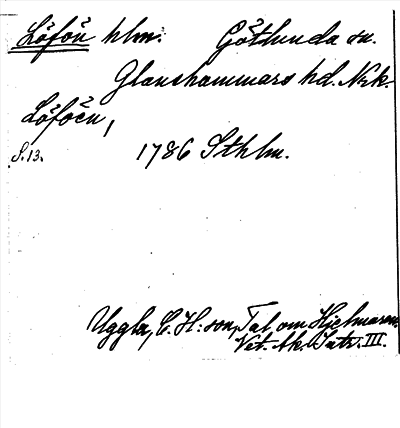 Löfön hlm. Götlunda sn.
Glanshammars hd. Nrk.
Löföen,
S. 13. 1786 Sthlm.
Uggla, C. H:son, Tal om Hjelmaren.
Vet. Ak. Intr. III.